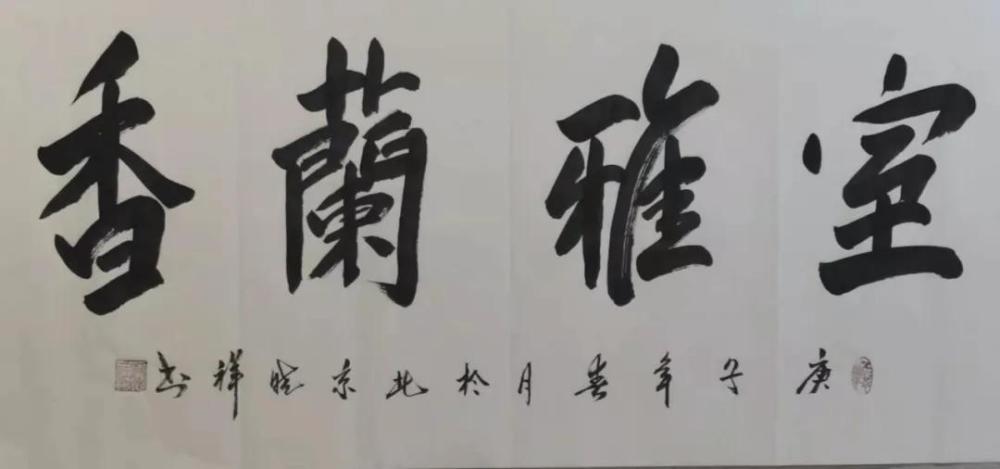 室雅蘭香
庚子年春月於北京曉祥书